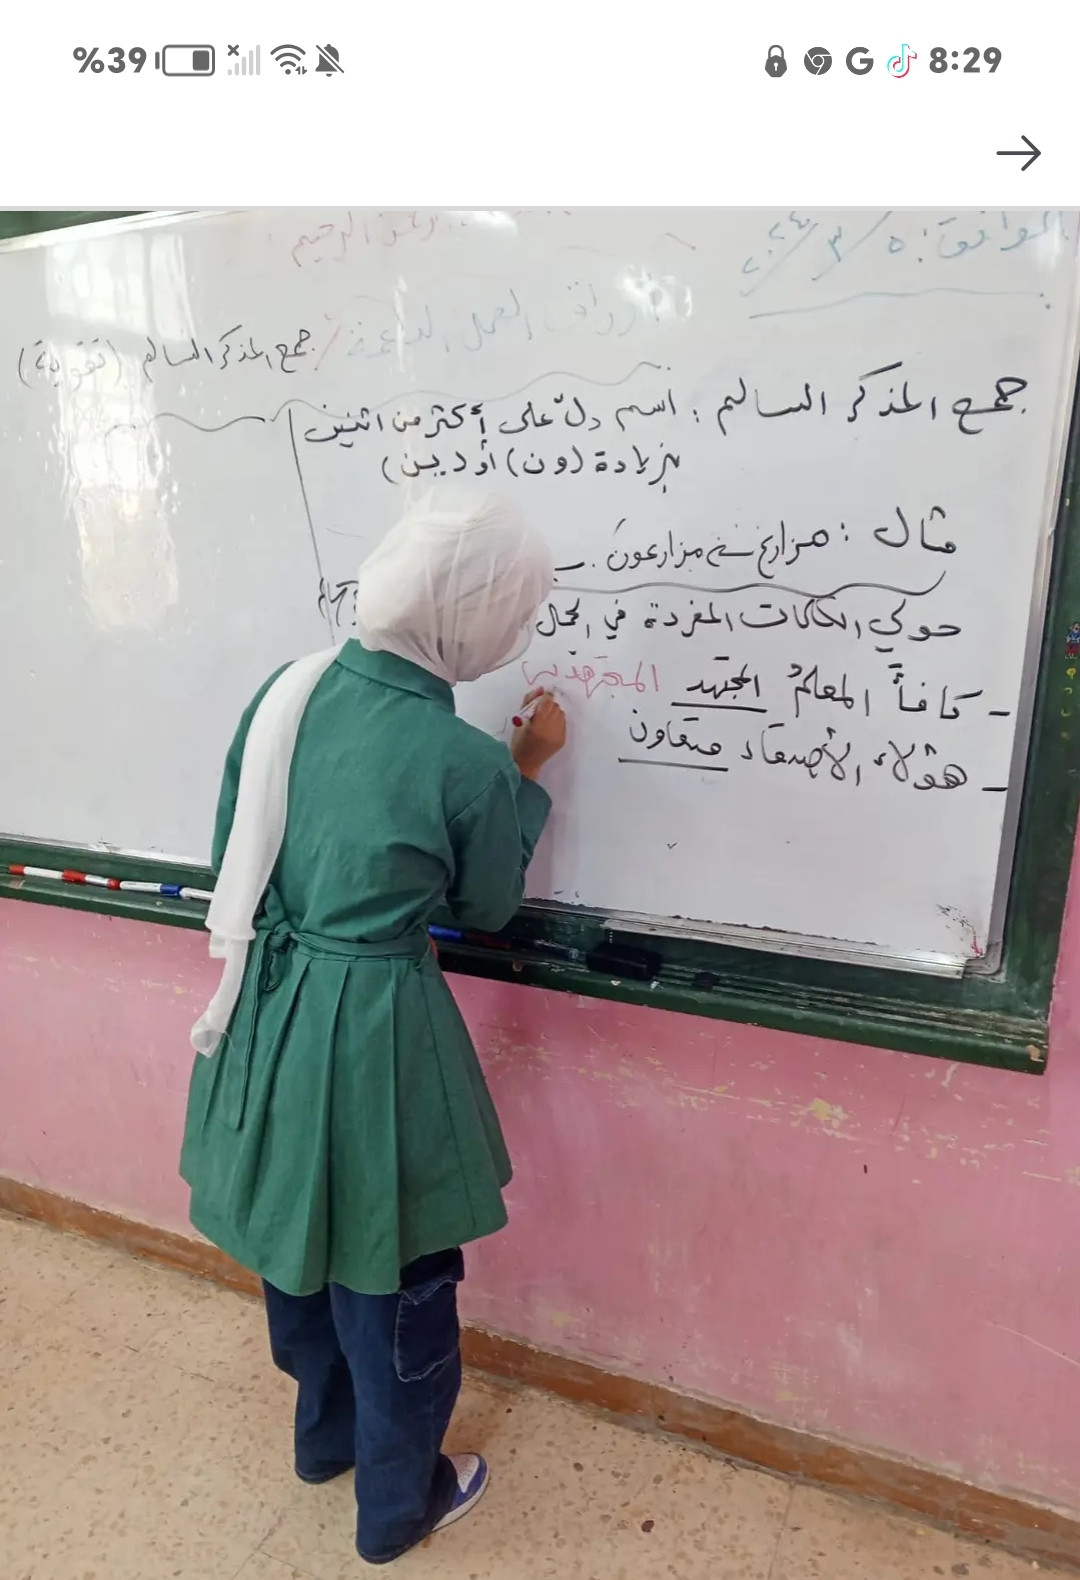 %39
8:29
الموافق: ٥ / ٣ / ٢٠٢٤
الرحيم
أوراق العمل الداعمة / جمع المذكر السالم (تقوية)
جمع المذكر السالم : اسم دلّ على أكثر من اثنين
بزيادة (ون) أو (ين)
مثال : مزارع ← مزارعون .
حولي الكلمات المفردة في الجمل
- كافأَ المعلمُ المجتهد المجتهدين
- هؤلاء الأصدقاء متعاون